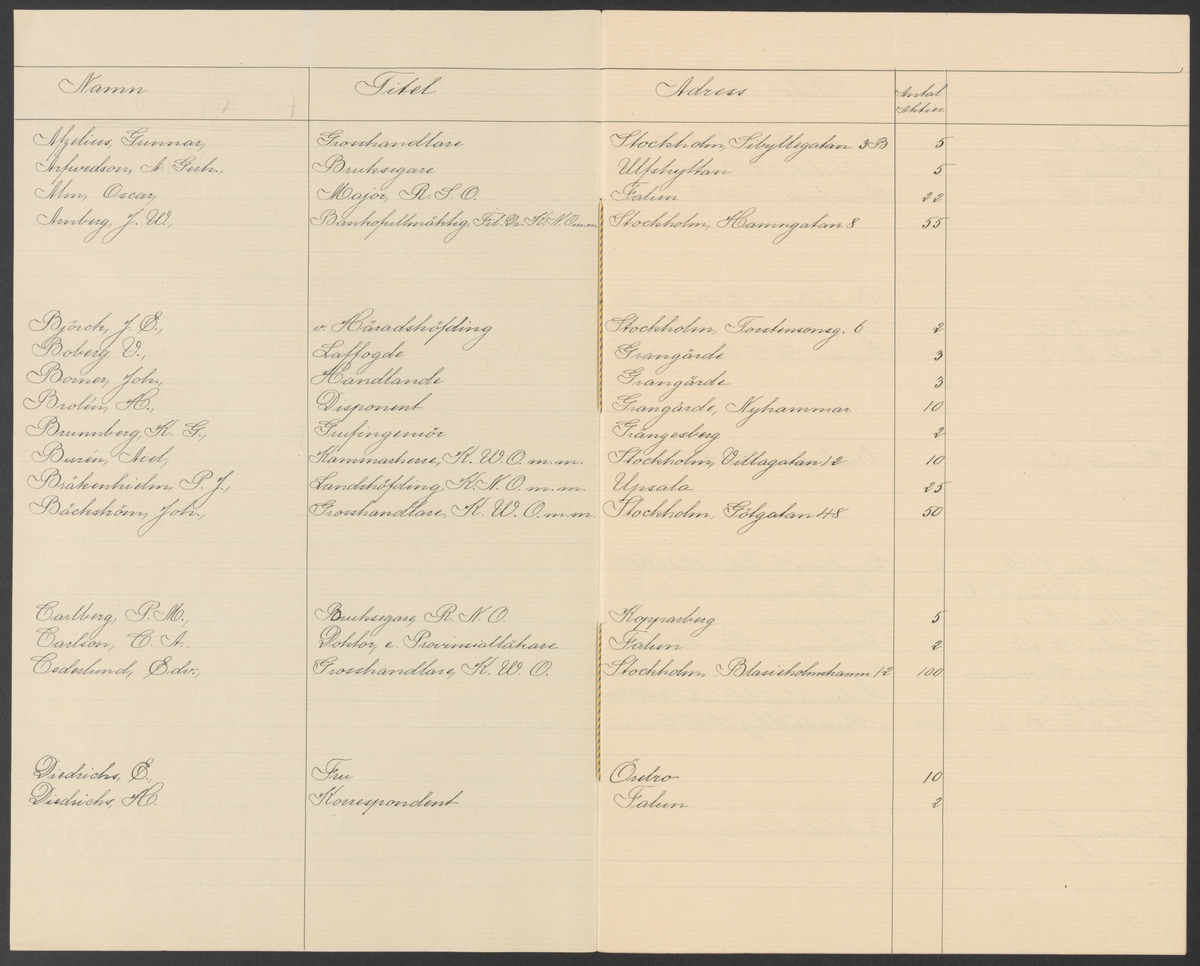 Namn Titel Adress Antal Aktier
Afzelius, Gunnar, Grosshandlare Stockholm, Sibyllegatan 3B 5
Arfwedson, A. Gerh., Bruksegare Ulfshyttan 5
Alm, Oscar, Major, R. S. O. Falun 22
Arnberg, J. W., Bankofullmäktig, Fil. Dr. St. N. O. m.m. Stockholm, Hamngatan 8 55
Björck, J. E., v. Häradshöfding Stockholm, Torstensonsg. 6 2
Boberg, V., Laffogde Grangärde 3
Borner, Joh., Handlande Grangärde 3
Brolén, H., Disponent Grangärde, Nyhammar 10
Brunnberg, K. G., Grufingeniör Grängesberg 2
Burén, Axel, Kammarherre, K. W. O. m.m. Stockholm, Villagatan 12 10
Bråkenhielm, P. J., Landshöfding, K. N. O. m.m. Upsala 25
Bäckström, Joh., Grosshandlare, K. W. O. m.m. Stockholm, Götgatan 48 50
Carlberg, P. M., Bruksegare, R. N. O. Kopparberg 5
Carlson, C. A. Doktor, e. Provinsialläkare Falun 2
Cederlund, Edv., Grosshandlare, K. W. O. Stockholm, Blasieholmshamn 12 100
Diedrichs, E., Fru Örebro 10
Diedrichs, H. Korrespondent Falun 2